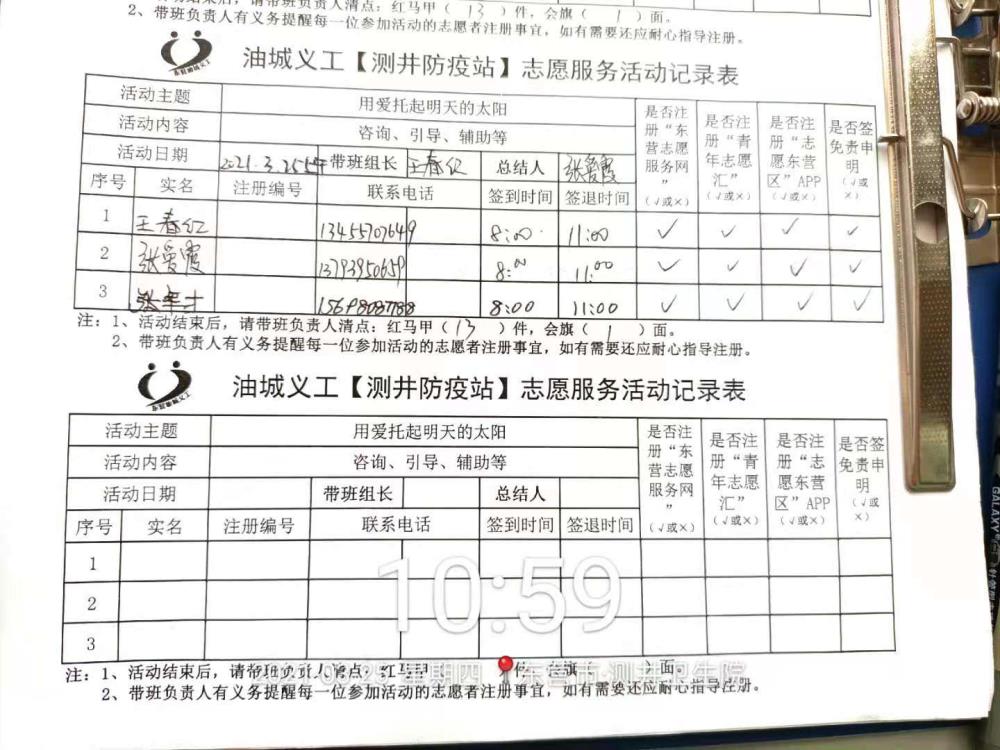 结束后，请带班负责人清点：红马甲（ 13 ）件，会旗（ 1 ）面。
2、带班负责人有义务提醒每一位参加活动的志愿者注册事宜，如有需要还应耐心指导注册。
油城义工【测井防疫站】志愿服务活动记录表
活动主题 用爱托起明天的太阳 是否注册“东营志愿服务网”（√或×） 是否注册“青年志愿汇”（√或×） 是否注册“志愿东营区”APP（√或×） 是否签免责申明（√或×）
活动内容 咨询、引导、辅助等
活动日期 2021.3.25 带班组长 王春红 总结人 张爱霞
序号 实名 注册编号 联系电话 签到时间 签退时间
1 王春红 13455707649 8:00 11:00 √ √ √ √
2 张爱霞 13793950659 8:00 11:00 √ √ √ √
3 8:00 11:00 √ √ √ √
注：1、活动结束后，请带班负责人清点：红马甲（ 13 ）件，会旗（ 1 ）面。
2、带班负责人有义务提醒每一位参加活动的志愿者注册事宜，如有需要还应耐心指导注册。
油城义工【测井防疫站】志愿服务活动记录表
活动主题 用爱托起明天的太阳 是否注册“东营志愿服务网”（√或×） 是否注册“青年志愿汇”（√或×） 是否注册“志愿东营区”APP（√或×） 是否签免责申明（√或×）
活动内容 咨询、引导、辅助等
活动日期 带班组长 总结人
序号 实名 注册编号 联系电话 签到时间 签退时间
1
2
3
10:59
注：1、活动结束后，请带班负责人清点：红马甲（ ）件，会旗（ ）面。
2021.03.25 星期四 东营市·测井卫生院
2、带班负责人有义务提醒每一位参加活动的志愿者注册事宜，如有需要还应耐心指导注册。
GALAXY